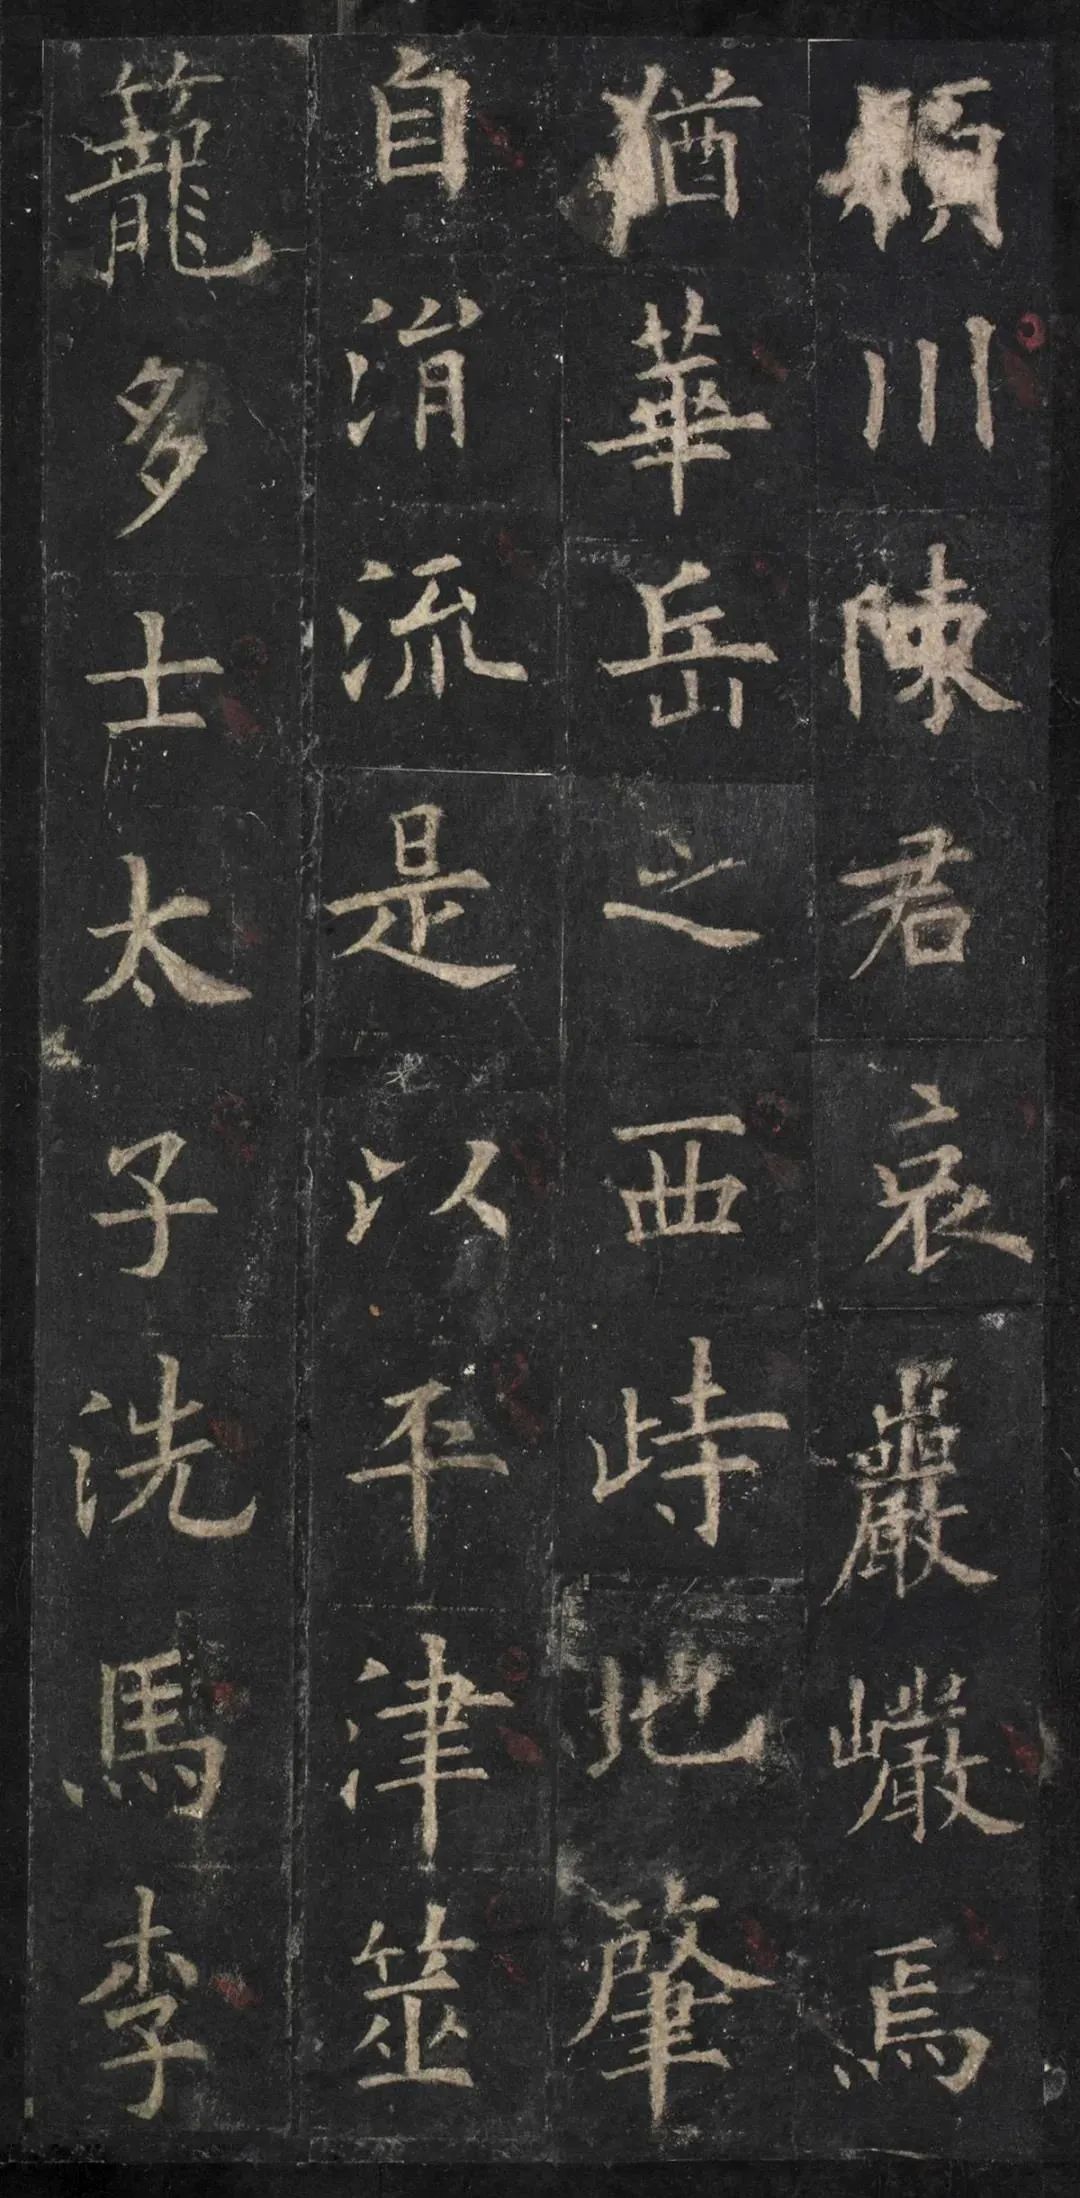 潁川陳君哀巖巗焉
猶華岳之西峙地肇
自涓流是以平津筮
籠多士太子洗馬李